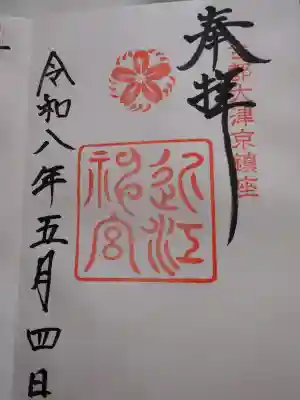 奉拝
古都大津京鎮座
近江
神宮
令和八年五月四日